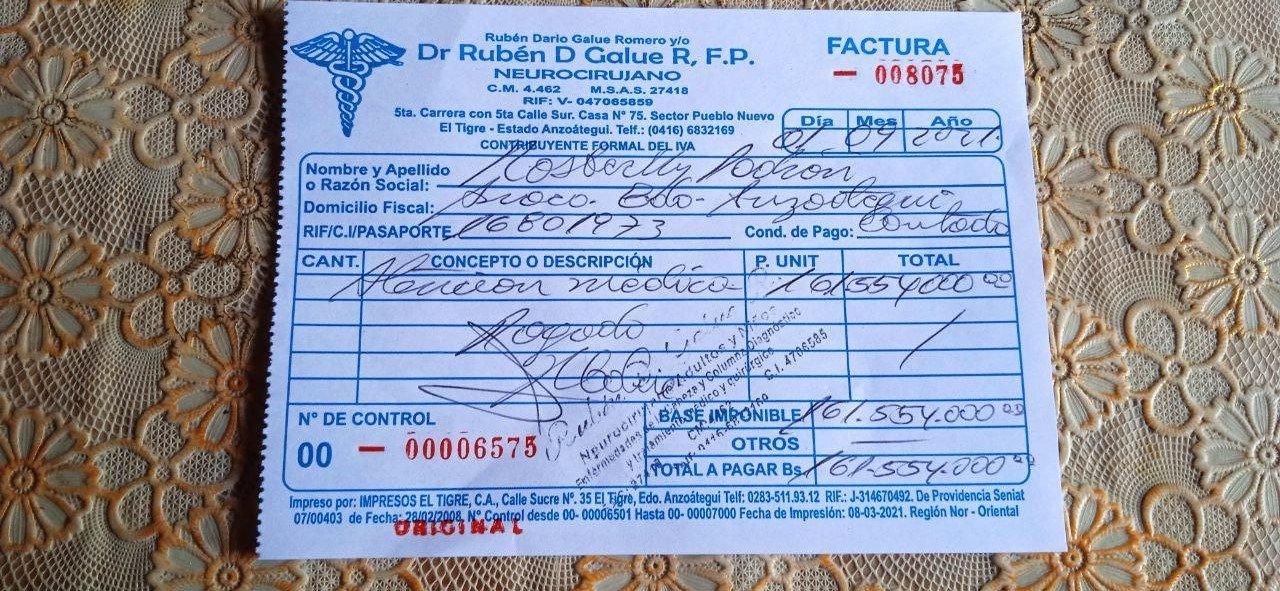 Rubén Dario Galue Romero y/o
Dr Rubén D Galue R, F.P.
NEUROCIRUJANO
C.M. 4.462 M.S.A.S. 27418
RIF: V- 047065859
5ta. Carrera con 5ta Calle Sur. Casa N° 75. Sector Pueblo Nuevo
El Tigre - Estado Anzoátegui. Telf.: (0416) 6832169
CONTRIBUYENTE FORMAL DEL IVA
FACTURA
— 008075
Día Mes Año
01 09 2021
Nombre y Apellido
o Razón Social: Padron
Domicilio Fiscal: Edo. Anzoategui
RIF/C.I/PASAPORTE 16801973 Cond. de Pago: Contado
CANT. CONCEPTO O DESCRIPCIÓN P. UNIT TOTAL
Atencion medica 161.554.000 00
Pagado
N° DE CONTROL
00 — 00006575
BASE IMPONIBLE 161.554.000 00
OTROS
TOTAL A PAGAR Bs. 161.554.000 00
Adultos y Niños
Cabeza y Columna Diagnostico
y tratamiento médico y quirúrgico
C.I. 4706585
Impreso por: IMPRESOS EL TIGRE, C.A., Calle Sucre Nº. 35 El Tigre, Edo. Anzoátegui Telf: 0283-511.93.12 RIF.: J-314670492. De Providencia Seniat
07/00403 de Fecha: 28/02/2008. N° Control desde 00- 00006501 Hasta 00- 00007000 Fecha de Impresión: 08-03-2021. Región Nor - Oriental
ORIGINAL